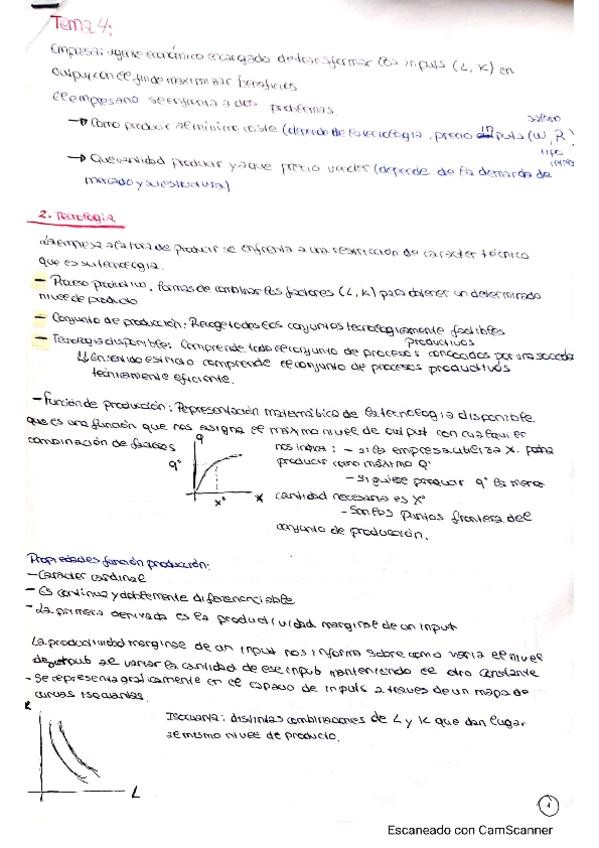 Tema 4:
Empresa: agente económico encargado de transformar los inputs (L, K) en
output, con el fin de maximizar beneficios
el empresario se enfrenta a dos problemas.
→ Como producir al mínimo coste (depende de la tecnología, precio inputs (W, R)
salario
tipo
interés
→ Que cantidad producir y a que precio vender (depende de la demanda de
mercado y su estructura)
2. Tecnología
La empresa a la hora de producir se enfrenta a una restricción de caracter técnico
que es su tecnología.
- Proceso productivo: formas de combinar los factores (L, K) para obtener un determinado
nivel de producto
- Conjunto de producción: Recoge todos los conjuntos tecnologicamente factibles
- Tecnología disponible: Comprende todo el conjunto de procesos productivos conocidos por una sociedad
En sentido estricto comprende el conjunto de procesos productivos
técnicamente eficiente.
- Función de producción: Representación matemática de la tecnología disponible
que es una función que nos asigna el máximo nivel de output con cualquier
combinación de factores
q
q°
x°
x
nos indica: - si la empresa utiliza x. podra
producir como máximo q°
- si quiere producir q° la menor
cantidad necesaria es x°
- Son los puntos frontera del
conjunto de producción.
Propiedades función producción:
- Caracter cardinal
- Es continua y doblemente diferenciable
- La primera derivada es la productividad marginal de un input
La productividad marginal de un input nos informa sobre como varia el nivel
de output al variar la cantidad de ese input manteniendo el otro constante
- Se representa graficamente en el espacio de inputs a traves de un mapa de
curvas isocuantas.
K
L
Isocuanta: distintas combinaciones de L y K que dan lugar
al mismo nivel de producto.
1
Escaneado con CamScanner